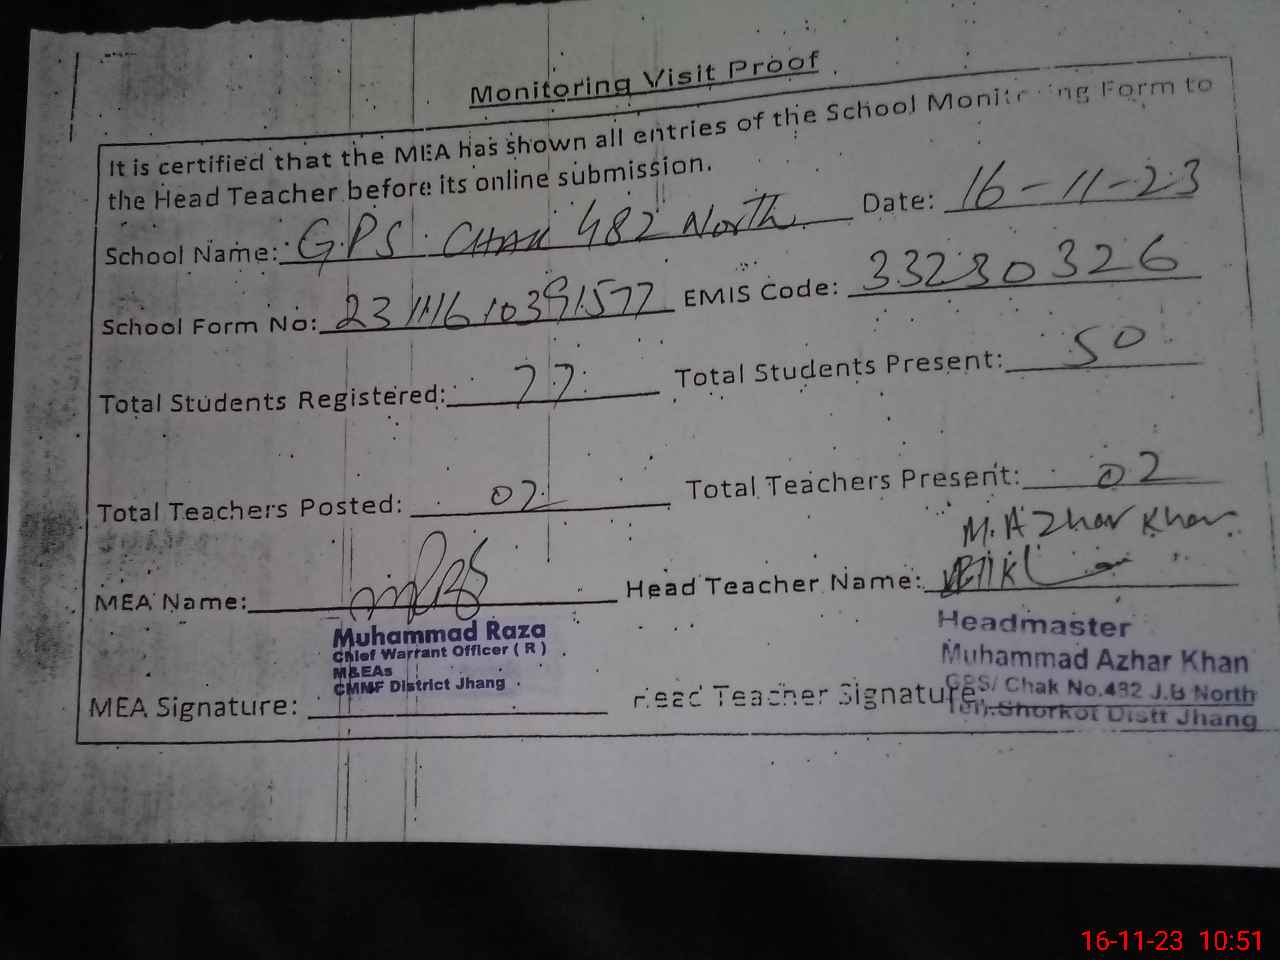 Monitoring Visit Proof
It is certified that the MEA has shown all entries of the School Monitoring Form to
the Head Teacher before its online submission.
School Name: G.P.S. Chak 482 North Date: 16-11-23
School Form No: 23111610391577 EMIS Code: 33230326
Total Students Registered: 77 Total Students Present: 50
Total Teachers Posted: 02 Total Teachers Present: 02
M. Azhar Khan
MEA Name: Head Teacher Name:
Muhammad Raza
Chief Warrant Officer ( R )
M&EAs
CMMF District Jhang
Headmaster
Muhammad Azhar Khan
GPS/ Chak No.482 J.B North
Shorkot Distt Jhang
MEA Signature: Head Teacher Signature:
16-11-23 10:51